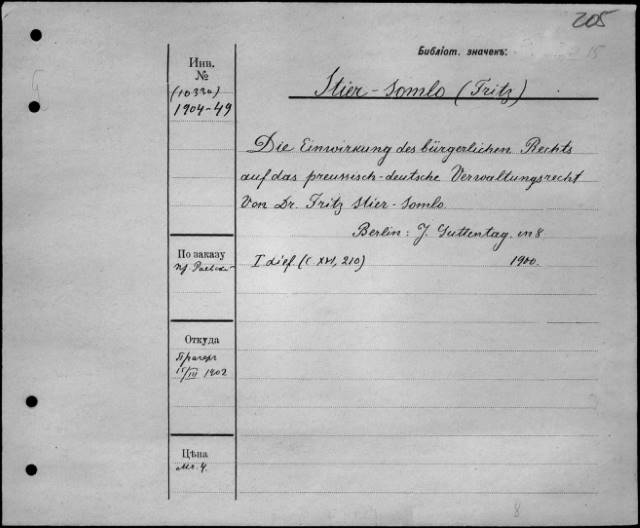 205
Библіот. значекъ:
15
Инв.
№
(10330)
1904-49
Stier-Somlo (Fritz)
Die Einwirkung des bürgerlichen Rechts
auf das preussisch-deutsche Verwaltungsrecht
Von Dr. Fritz Stier-Somlo
Berlin: J. Guttentag. in 8
По заказу
пр.
I Lief. (C. XVI, 210) 1900.
Откуда
Прагеръ
15/III 1902
Цѣна
Мк. 4.
8